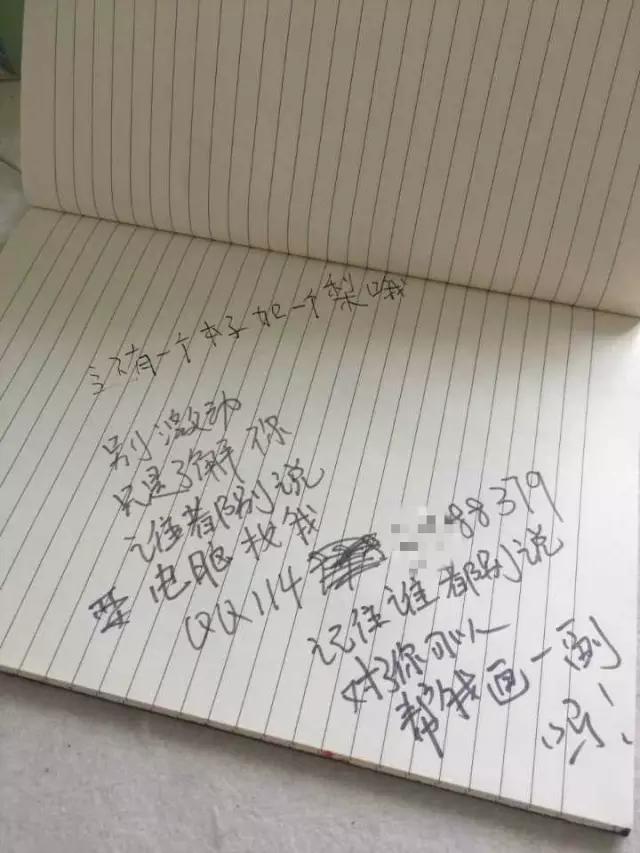 有一个本子 一个梨哦
别激动
只是了解你
谁都别说
电脑找我
QQ114 88379
记住谁都别说
对了你可以
帮我画一副
吗！